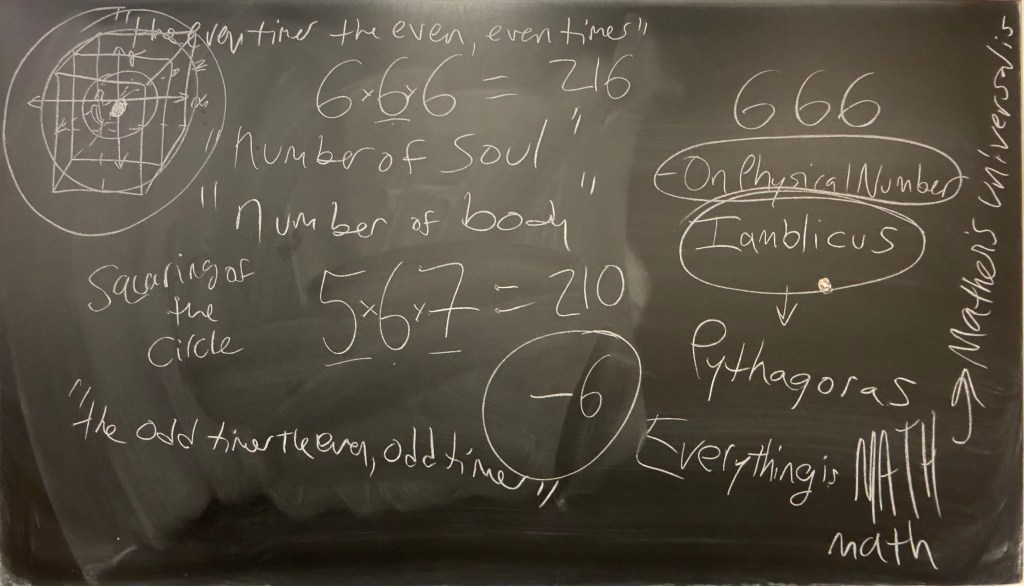 "the even times the even, even times"
6×6×6 = 216
"number of Soul"
"number of body"
Squaring of
the
Circle
5×6×7 = 210
-6
"the odd times the even, odd times"
666
-On Physical Number
Iamblicus
↓
Pythagoras
Everything is MATH
math
→ Matheis universalis